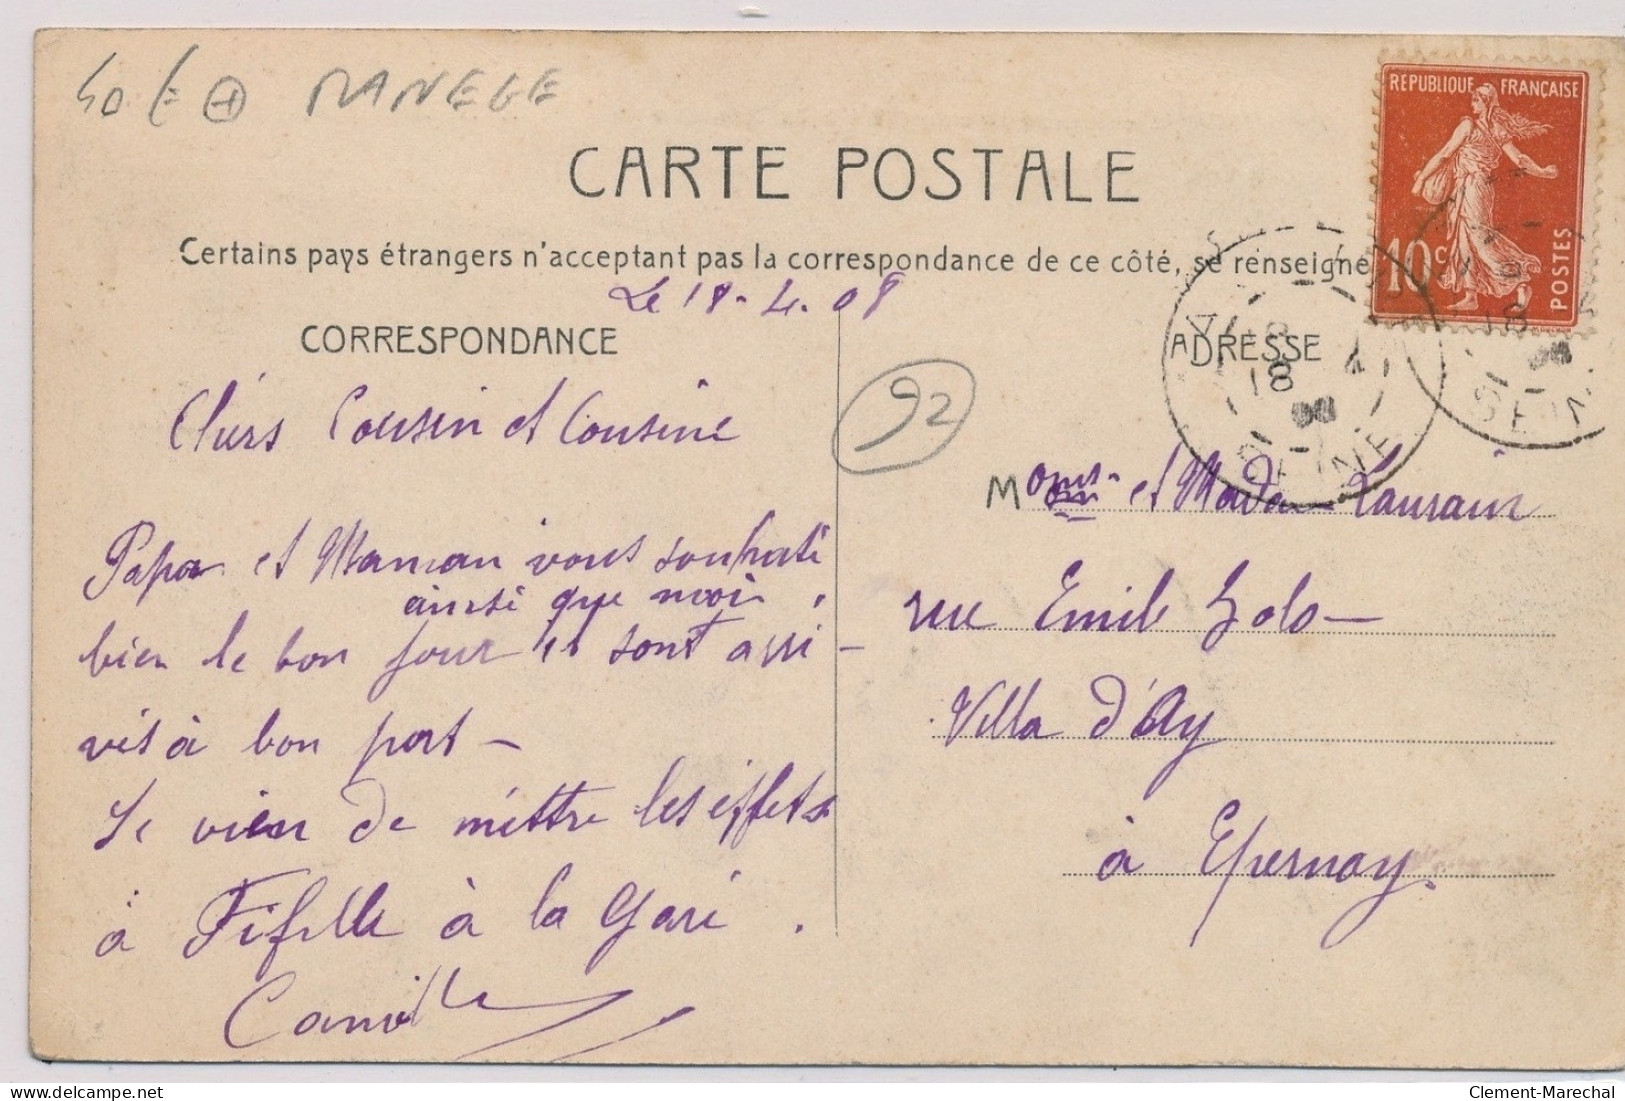 40 € MANEGE
REPUBLIQUE FRANÇAISE
10c
POSTES
CARTE POSTALE
Certains pays étrangers n'acceptent pas la correspondance de ce côté, se renseigne
Le 18-4.08
CORRESPONDANCE
ADRESSE
92
18
SEINE
Chers Cousin et Cousine
Papa et Maman vous souhate
ainsi que moi,
bien le bon jour et sont arri-
vés à bon port -
Je vien de mettre les effets
à Fifille à la Gare.
Camille
Mons et Madam Laurain
rue Emile Zola -
Villa d'Ay
à Epernay.
delcampe.net
Clement-Marechal